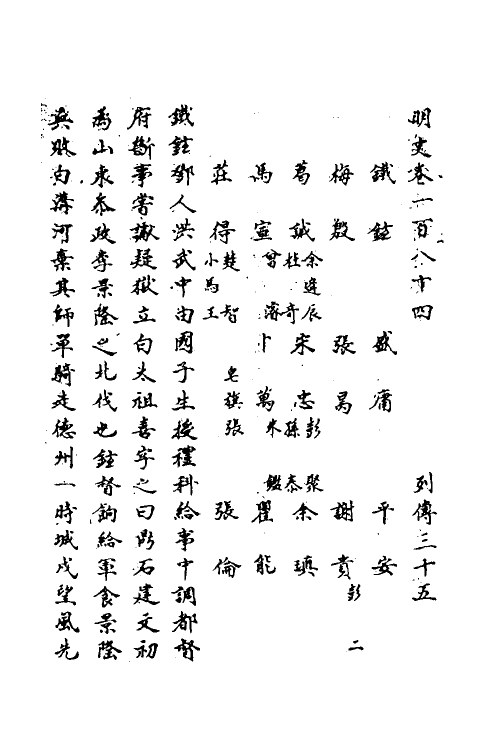 明史卷一百八十四 列傳三十五
鐵鉉 盛庸 平安
梅殷 張昺 謝貴 彭二
葛誠 余逢辰 杜奇 宋忠 彭聚 孫泰 余瑱
馬宣 曾濬 卜萬 朱鑑 瞿能
莊得 楚智 小馬王 皂旗張 張倫
鐵鉉鄧人洪武中由國子生授禮科給事中調都督
府斷事嘗讞疑獄立白太祖喜字之曰鼎石建文初
為山東參政李景隆之北伐也鉉督餉給軍食景隆
兵敗白溝河棄其師單騎走德州一時城戍望風先